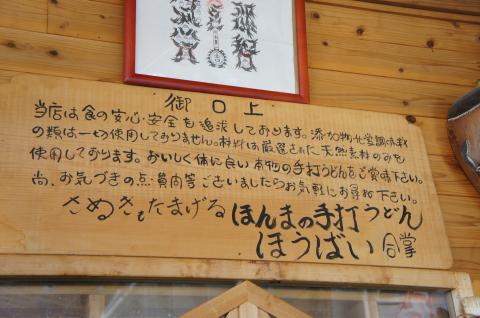 御口上
当店は食の安心・安全を追求しております。添加物・化学調味料
の類は一切使用しておりません。材料は厳選された天然素材のみを
使用しております。おいしく体に良い本物の手打うどんをご賞味下さい。
尚、お気づきの点・質問等ございましたらお気軽にお尋ね下さい。
さぬきもたまげるほんまの手打うどん
ほうばい 合掌